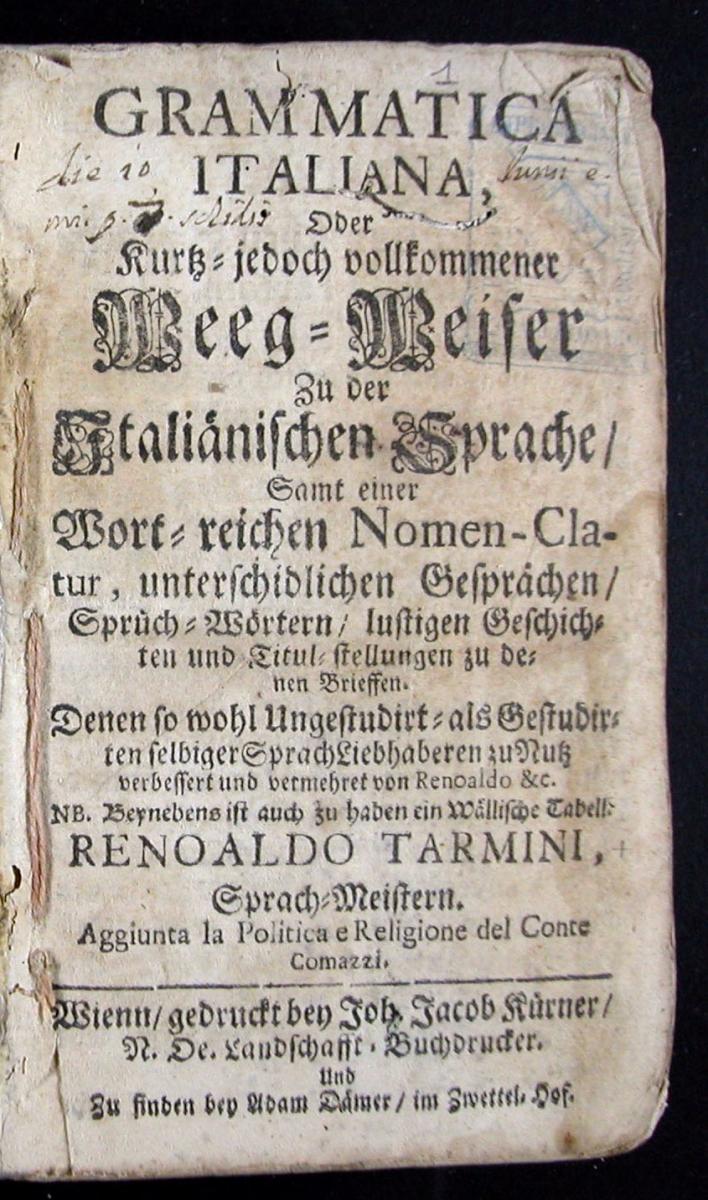 1
GRAMMATICA
ITALIANA,
die 10 Junii e-
mi p.
Oder
Kurtz-jedoch vollkommener
Weeg-Weiser
Zu der
Italiänischen Sprache/
Samt einer
Wort-reichen Nomen-Cla-
tur, unterschidlichen Gesprächen/
Sprüch-Wörtern/ lustigen Geschich-
ten und Titul-stellungen zu de-
nen Brieffen.
Denen so wohl Ungestudirt-als Gestudir-
ten selbiger Sprach Liebhaberen zu Nutz
verbessert und vermehret von Renoaldo &c.
NB. Beynebens ist auch zu haben ein Wällische Tabell:
RENOALDO TARMINI,
Sprach-Meistern.
Aggiunta la Politica e Religione del Conte
Comazzi.
Wienn/ gedruckt bey Joh. Jacob Kürner/
N. Oe. Landschafft-Buchdrucker.
Und
Zu finden bey Adam Dämer/ im Zwettel-Hof.